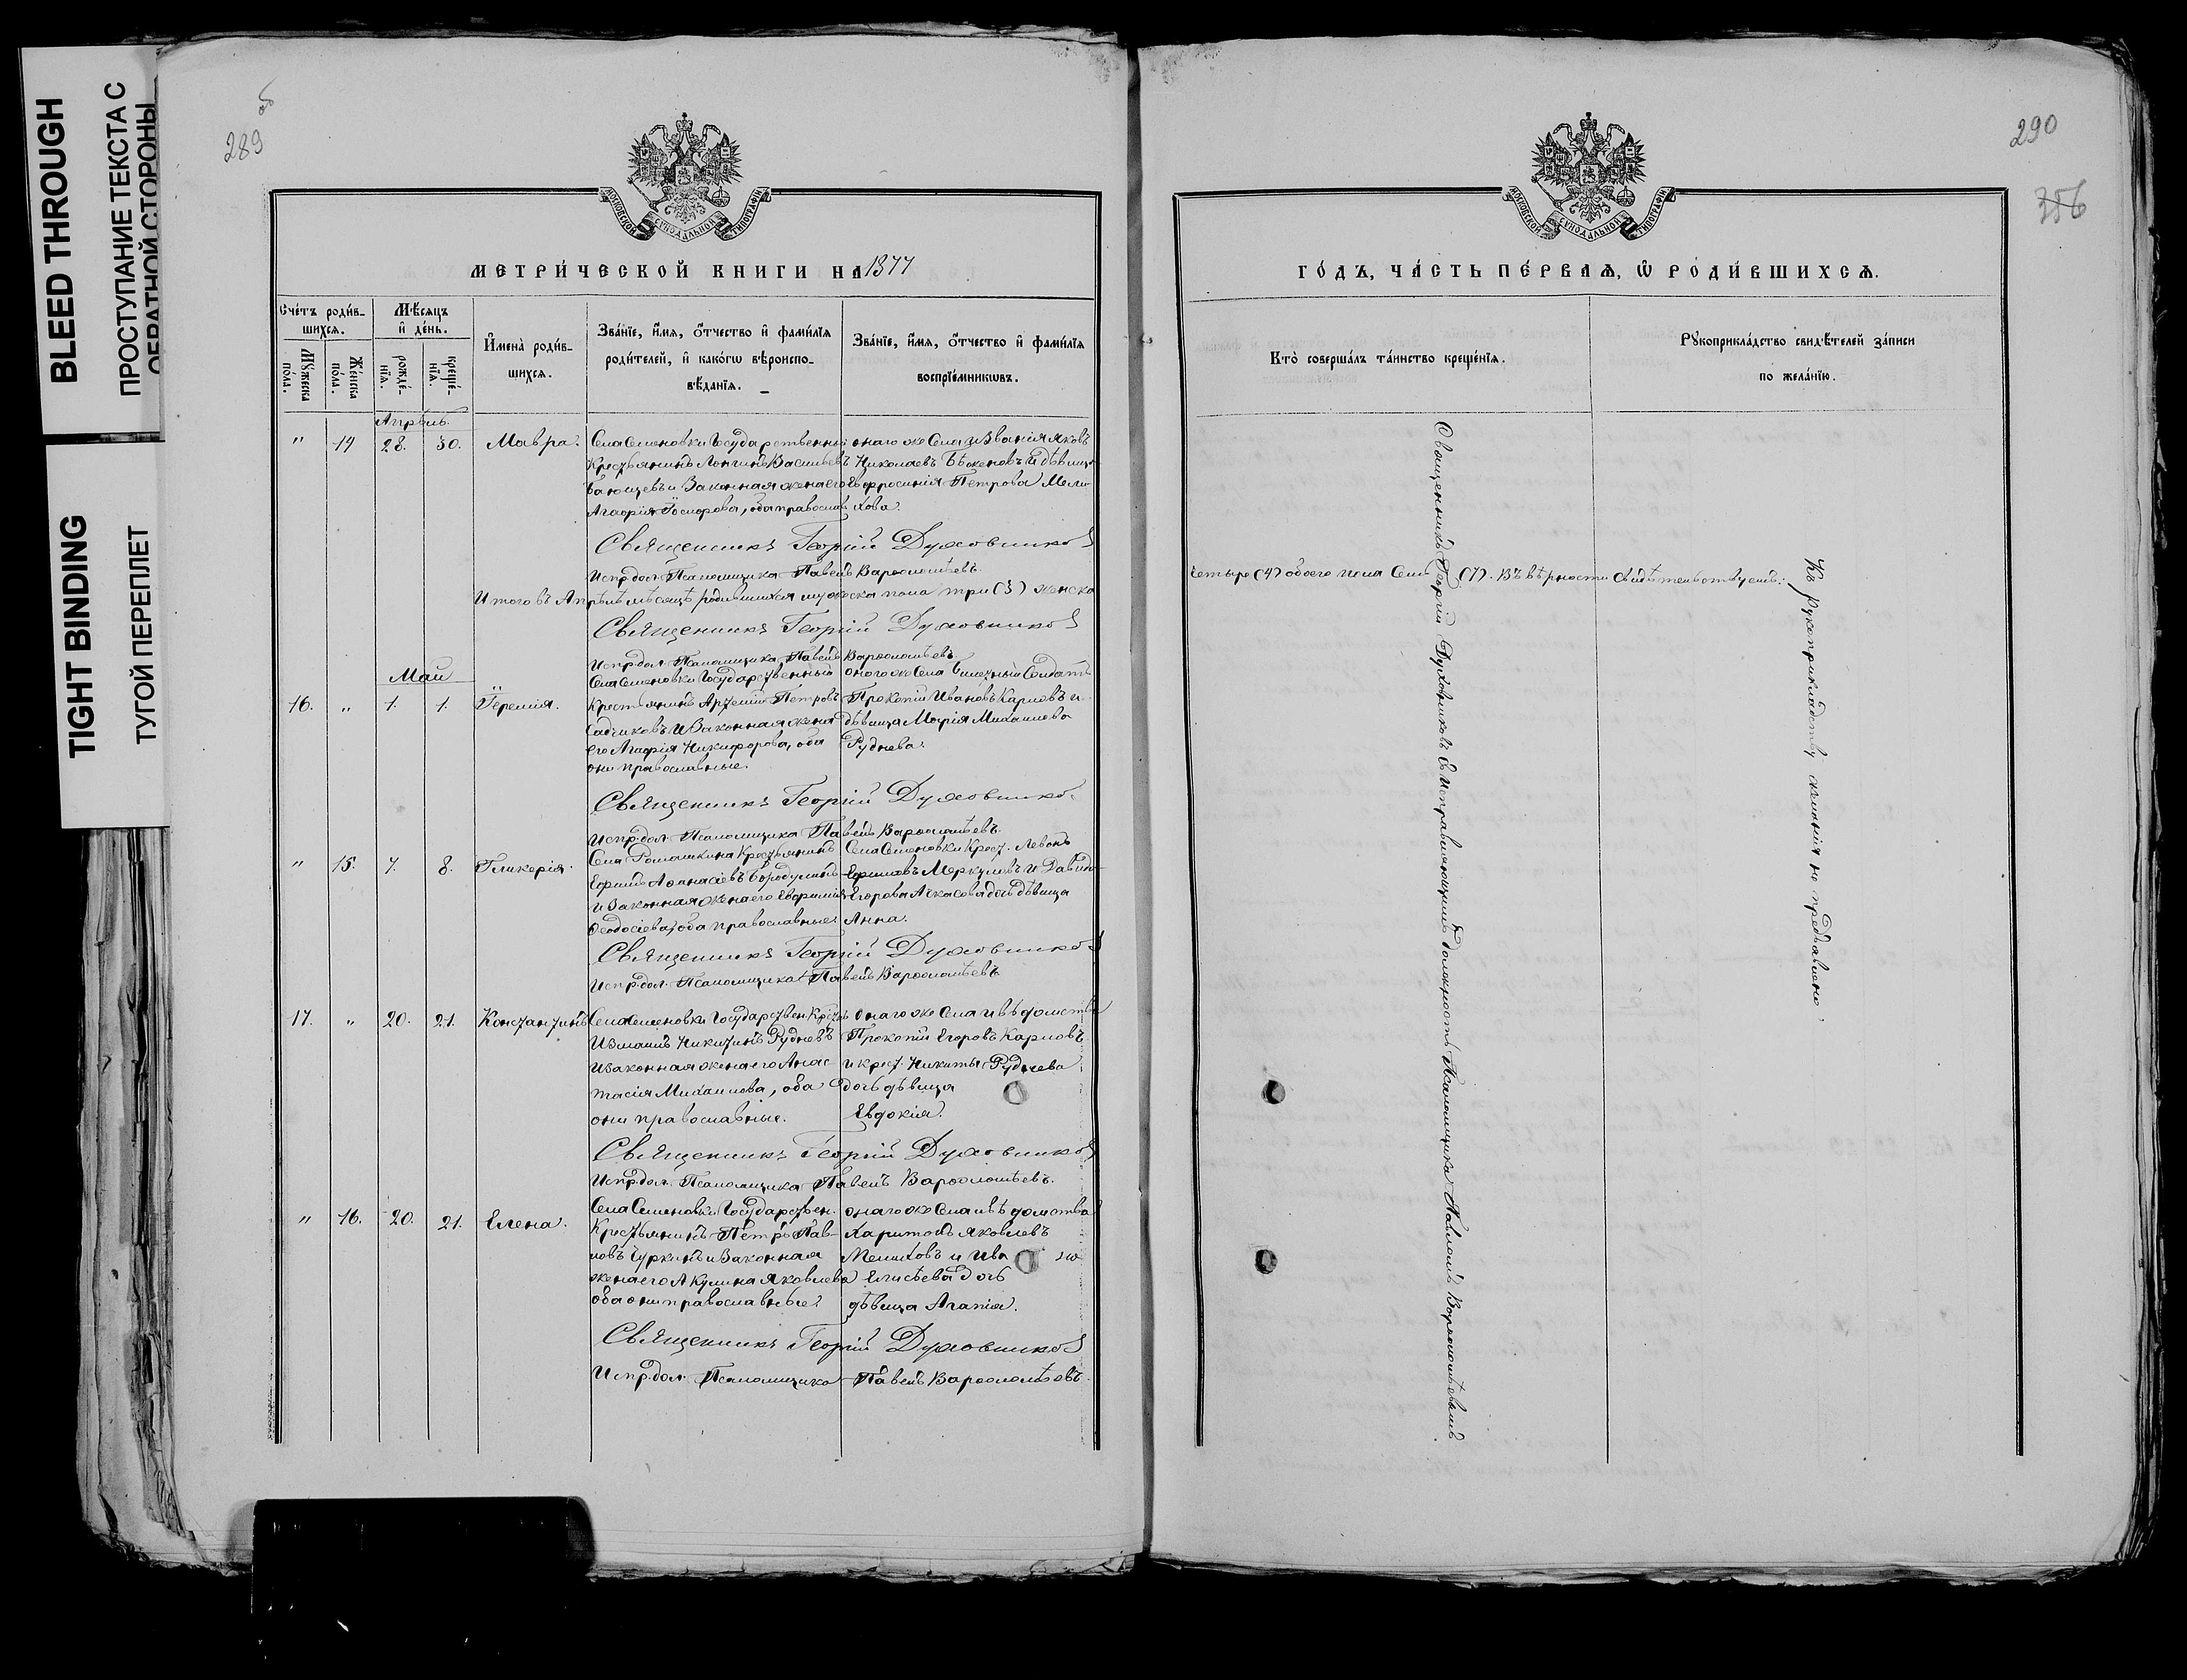 BLEED THROUGH
ПРОСТУПАНИЕ ТЕКСТА С
ОБРАТНОЙ СТОРОНЫ
TIGHT BINDING
ТУГОЙ ПЕРЕПЛЕТ
289
об
МОСКОВСКОЙ СѴНОДАЛЬНОЙ ТИПОГРАФІИ
МЕТРИ́ЧЕСКОЙ КНИГИ НА 1877
Сче́тъ роди́в-
шихся.
Мꙋжеска
по́ла.
Же́нска
по́ла.
Мѣ́сяцъ
и҆ де́нь.
рожде́-
нїя.
креще́-
нїя.
И҆мена̀ роди́в-
шихся.
Зва́нїе, и҆́мя, ѻ҆́тчество и҆ фами́лїя
роди́телей, и҆ како́гѡ вѣроиспо-
вѣ́данїя.
Зва́нїе, и҆́мя, ѻ҆́тчество и҆ фами́лїя
воспрїе́мникѡвъ.
Апрѣль.
" 14 28. 30. Мавра.
Села Семеновки Государственный
Крестьянинъ Лонгинъ Васильевъ
и Законная жена его
Агафія, оба православ
онаго же Села Яковъ
Николаевъ и дѣвица
Евфросинія Петрова Мели-
хова.
Священникъ Георгій Духовников
Испр. дол. Псаломщика Павелъ Варѳоломѣевъ.
Итого въ Апрѣлѣ мѣсяцѣ родившихся мужеска пола три (3) женска
Священникъ Георгій Духовников
Испр. дол. Псаломщика Павелъ Варѳоломѣевъ.
Май
16. " 1. 1. Іеремія.
Села Семеновки Государственный
Крестьянинъ Артемій Петровъ
Садчиковъ и Законная жена
его Агафія Никифорова, оба
они православные.
онаго же Села Солдатъ
Прокопій Ивановъ Карповъ и
дѣвица Марія Михаилова
Руднева.
Священникъ Георгій Духовнико
Испр. дол. Псаломщика Павелъ Варѳоломѣевъ.
" 15. 7. 8. Гликерія.
Села Ромашкина Крестьянинъ
Ефимъ Аѳанасіевъ Бородулинъ
и Законная жена его Евфимія
Ѳеодосіева, оба православные.
Села Семеновки Крест. Левонъ
Ефимовъ Меркуловъ и Давида
Егорова дочь дѣвица
Анна.
Священникъ Георгій Духовников
Испр. дол. Псаломщика Павелъ Варѳоломѣевъ
17. " 20. 21. Константинъ
Села Семеновки Государствен. Крест.
Измаилъ Никитинъ Рудневъ
и Законная жена его Анас-
тасія Михаилова, оба
они православные.
онаго же Села и вѣдомства
Прокопій Егоровъ Карповъ
и крест. Никиты Руднева
дочь дѣвица
Евдокія.
Священникъ Георгій Духовников
Испр. дол. Псаломщика Павелъ Варѳоломѣевъ.
" 16. 20. 21. Елена.
Села Семеновки Государствен.
Крестьянинъ Петръ Пав-
ловъ Чуркинъ и Законная
жена его Акулина Яковлева
оба они православные.
онаго же Села и вѣдомства
Харитонъ Яковлевъ
Мелиховъ и Ива
Елисѣева дочь
дѣвица Агапія.
Священникъ Георгій Духовников
Испр. дол. Псаломщика Павелъ Варѳоломѣевъ.
290
356
МОСКОВСКОЙ СѴНОДАЛЬНОЙ ТИПОГРАФІИ
ГО́ДЪ, ЧА́СТЬ ПЕ́РВАЯ, Ѡ҆ РОДИ́ВШИХСЯ.
Кто̀ соверша́лъ та́инство креще́нїя.
Рꙋкоприкла́дство свидѣ́телей за́писи
по жела́нїю.
четыре (4) обоего пола Семь (7). Въ вѣрности свидѣтельствуемъ:
Священникъ Георгій Духовниковъ съ Исправляющимъ должность Псаломщика Павломъ Варѳоломѣевымъ
Къ рукоприкладству желанія не предъявлено